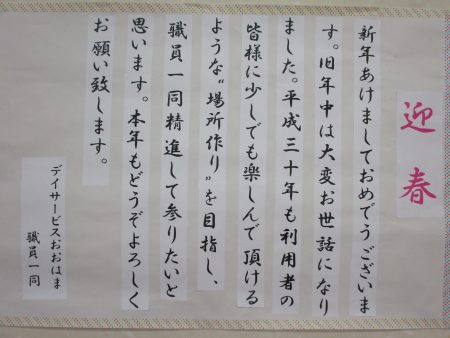 迎春
新年あけましておめでうございま
す。旧年中は大変お世話になり
ました。平成三十年も利用者の
皆様に少しでも楽しんで頂ける
ような“場所作り”を目指し、
職員一同精進して参りたいと
思います。本年もどうぞよろしく
お願い致します。
デイサービスおおはま
職員一同